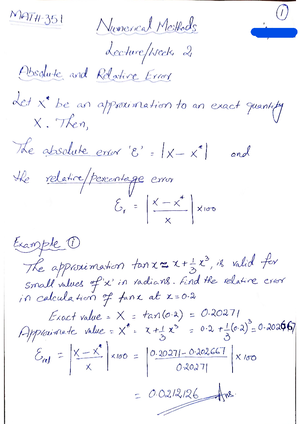 MATH-351
①
Numerical Methods
Lecture/Week 2
Absolute and Relative Error
Let X* be an approximation to an exact quantity
X. Then,
The absolute error 'Ɛ' = |X − X*| and
the relative/percentage error
Ɛᵣ = |(X − X*)/X| ×100
Example ①
The approximation tan x ≈ x + 1/3 x³, is valid for
small values of 'x' in radians. Find the relative error
in calculation of tan x at x = 0.2
Exact value = X = tan(0.2) = 0.20271
Approximate value = X* = x + 1/3 x³ = 0.2 + 1/3 (0.2)³ = 0.202667
Ɛrel = |(X − X*)/X| ×100 = |(0.20271 − 0.202667)/0.20271| ×100
= 0.0212126 Ans